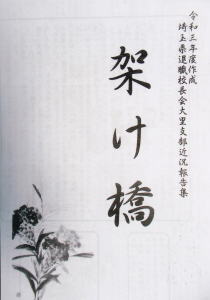 令和三年度作成
埼玉県退職校長会大里支部近況報告集
架け橋